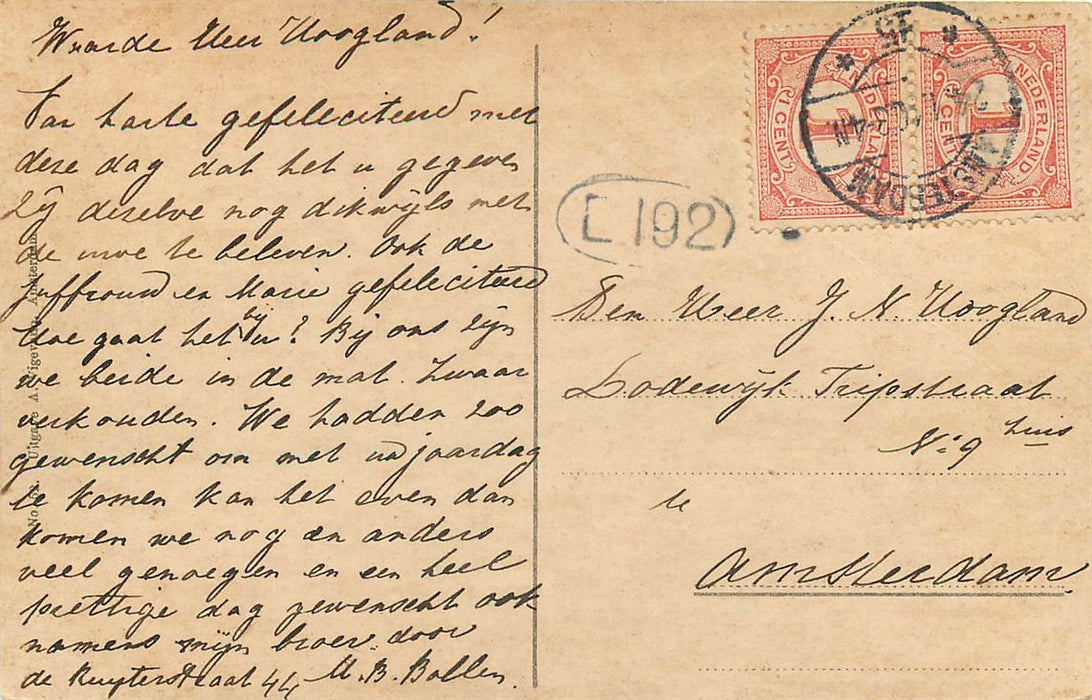 Waarde Heer Hoogland!
Van harte gefeleciteerd met
deze dag dat het u gegeven
zij deselve nog dikwijls met
de uwe te beleven. Ook de
Juffrouw en Marie gefeleciteerd
Hoe gaat het bij u? Bij ons zijn
we beide in de mat. Zwaar
verkouden. We hadden zoo
gewenscht om met uw jaardag
te komen kan het even dan
komen we nog en anders
veel genoegen en een heel
prettige dag gewenscht ook
namens mijn broer door
de Ruyterstraat 44 M. B. Bollen.
NEDERLAND
1
1 CENT
NEDERLAND
1
1 CENT
AMSTERDAM
15
L 192
Den Heer J. N. Hoogland
Lodewijk Tripstraat
No: 9 huis
te
Amsterdam